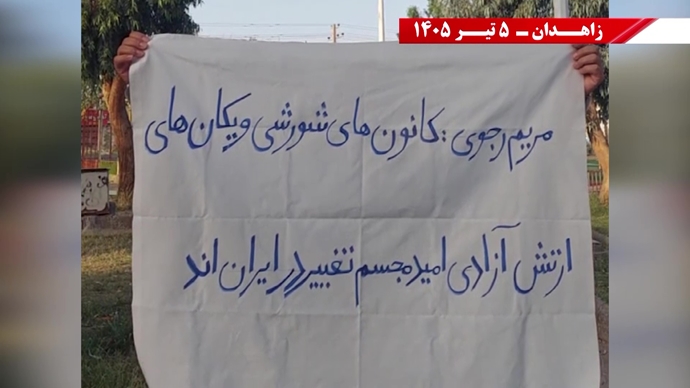 زاهدان ـ ۵ تیر ۱۴۰۵
مریم رجوی : کانون های شورشی و یکان های
ارتش آزادی امید مجسم تغییر در ایران اند